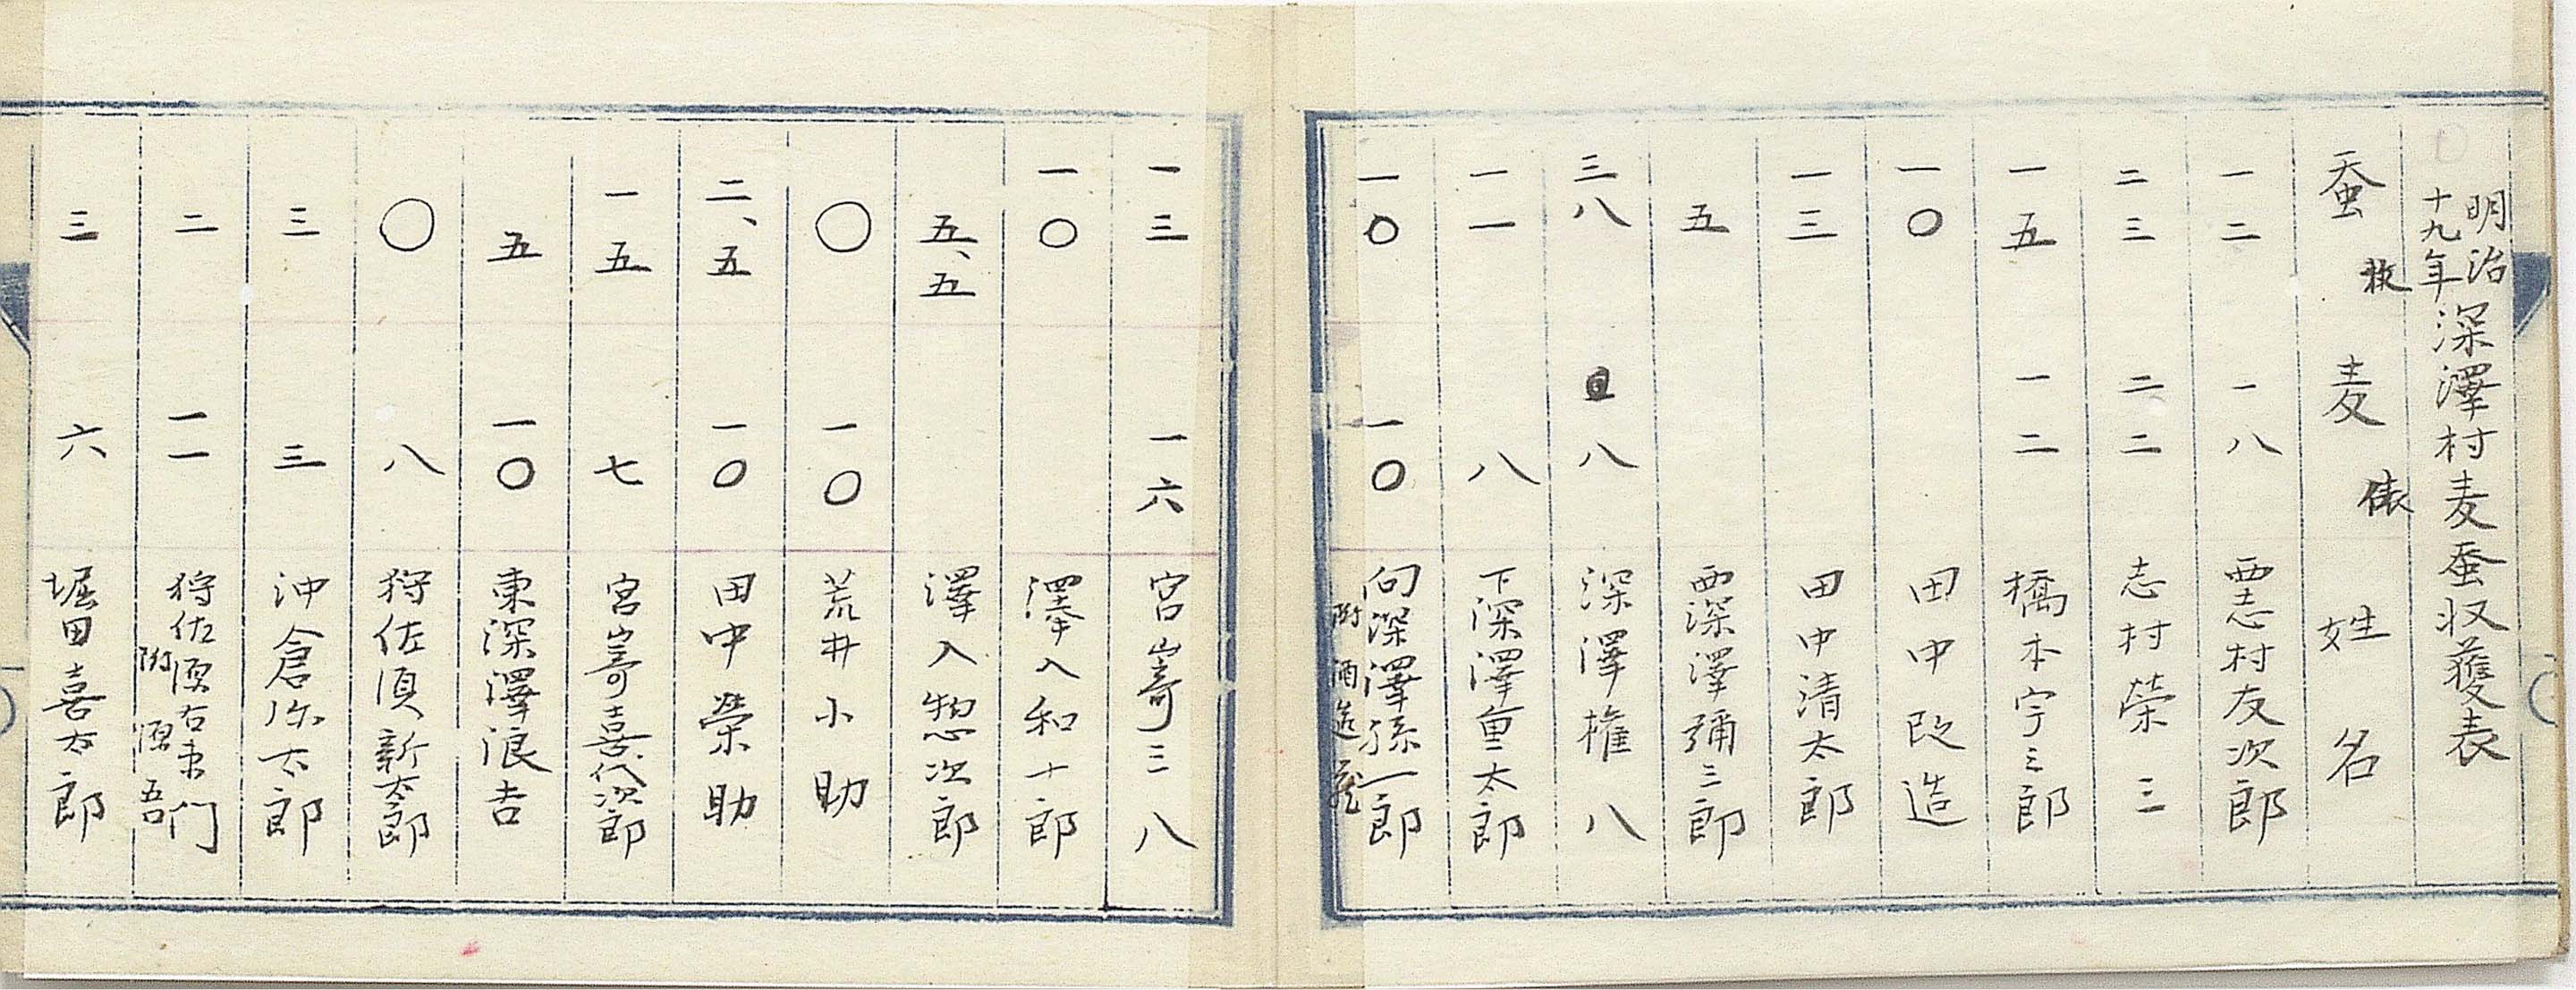 明治十九年深澤村麦蚕収獲表
蚕枚 麦俵 姓名
一二 一八 西志村友次郎
二三 二二 志村栄三
一五 一二 橋本宇三郎
一〇 田中改造
一三 田中清太郎
五 西深澤彌三郎
三八 八 深澤権八
一一 八 下深澤重太郎
一〇 一〇 向深澤孫一郎
附 酒造
一三 一六 宮嵜三八
一〇 澤入和十郎
五、五 澤入惣次郎
〇 一〇 荒井小助
二、五 一〇 田中榮助
一五 七 宮嵜喜代次郎
五 一〇 東深澤浪吉
〇 八 狩佐須新太郎
三 三 沖倉弥太郎
二 一一 狩佐須右衛门
附 源吾
三 六 堀田喜太郎